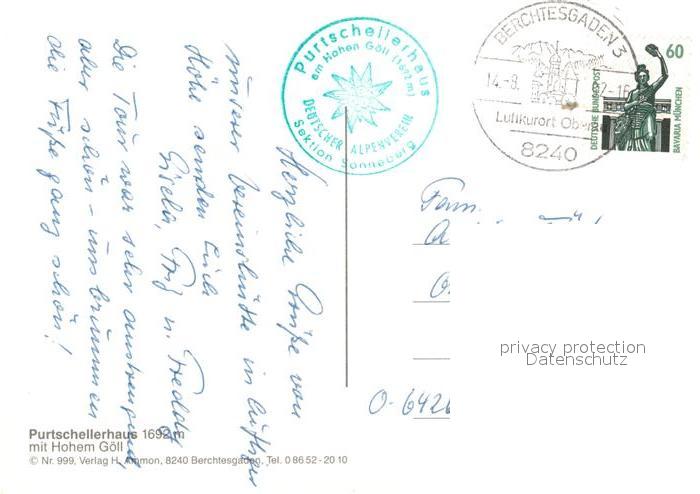 Purtschellerhaus
am Hohen Göll (1692m)
DEUTSCHER ALPENVEREIN
Sektion Sonneberg
BERCHTESGADEN 3
14.-8.
2-16
Luftkurort Ob
8240
60
DEUTSCHE BUNDESPOST
BAVARIA MÜNCHEN
Herzliche Grüße von
unserer Vereinshütte in luftiger
Höhe senden Euch
Gisela, u. Freddy
Die Tour war sehr anstrengend,
aber schön - uns brummen
die Füße ganz schön!
Fam.
O-642
privacy protection
Datenschutz
Purtschellerhaus 1692 m
mit Hohem Göll
© Nr. 999, Verlag H. Ammon, 8240 Berchtesgaden, Tel. 0 86 52 - 20 10